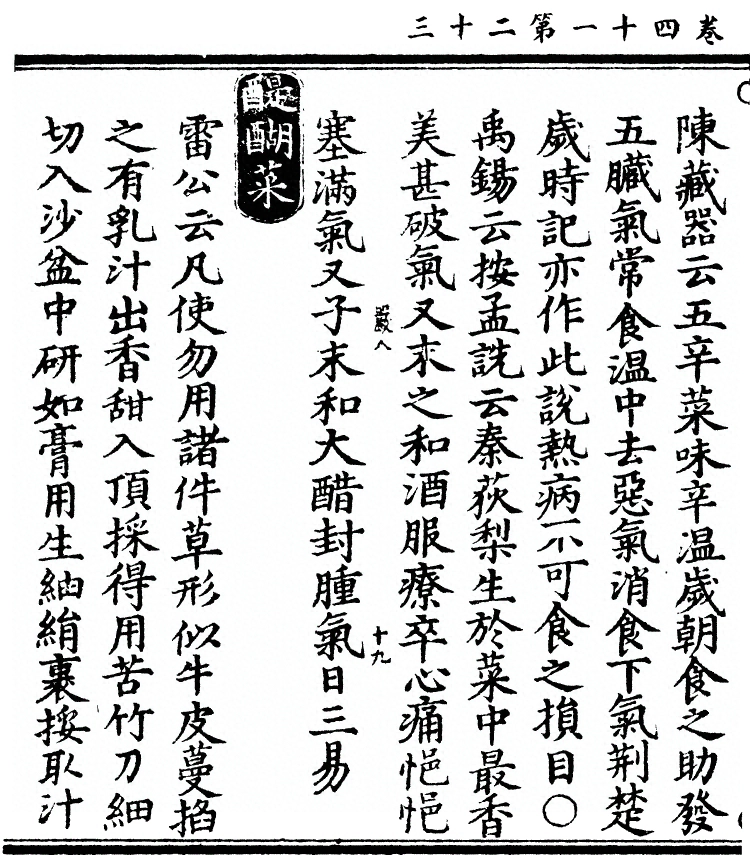 卷四十一第二十三
陳藏器云五辛菜味辛温歲朝食之助發
五臟氣常食温中去惡氣消食下氣荆楚
歲時記亦作此說熱病不可食之損目○
禹錫云按孟詵云秦荻梨生於菜中最香
美甚破氣又末之和酒服療卒心痛悒悒
嚴八
十九
塞滿氣又子末和大醋封腫氣日三易
醍醐菜
雷公云凡使勿用諸件草形似牛皮蔓掐
之有乳汁出香甜入頂採得用苦竹刀細
切入沙盆中研如膏用生紬絹裹挼取汁